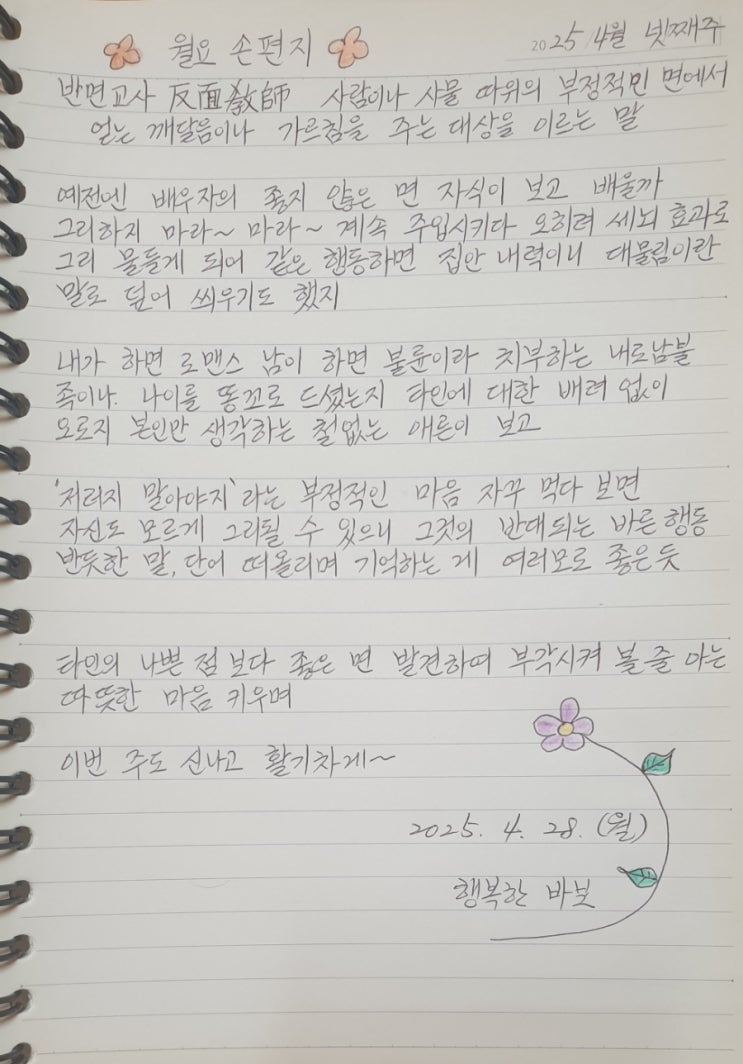 월요 손편지
2025/4월 넷째주
반면교사 反面教師 사람이나 사물 따위의 부정적인 면에서
얻는 깨달음이나 가르침을 주는 대상을 이르는 말
예전엔 배우자의 좋지 않은 면 자식이 보고 배울까
그리하지 마라~ 마라~ 계속 주입시키다 오히려 세뇌 효과로
그리 물들게 되어 같은 행동하면 집안 내력이니 대물림이란
말로 덮어 씌우기도 했지
내가 하면 로맨스 남이 하면 불륜이라 치부하는 내로남불
족이나. 나이를 똥꼬로 드셨는지 타인에 대한 배려 없이
오로지 본인만 생각하는 철없는 애른이 보고
'저러지 말아야지'라는 부정적인 마음 자꾸 먹다 보면
자신도 모르게 그리될 수 있으니 그것의 반대되는 바른 행동
반듯한 말, 단어 떠올리며 기억하는 게 여러모로 좋은듯
타인의 나쁜 점 보다 좋은 면 발견하여 부각시켜 볼 줄 아는
따뜻한 마음 키우며
이번 주도 신나고 활기차게~
2025. 4. 28. (월)
행복한 바보